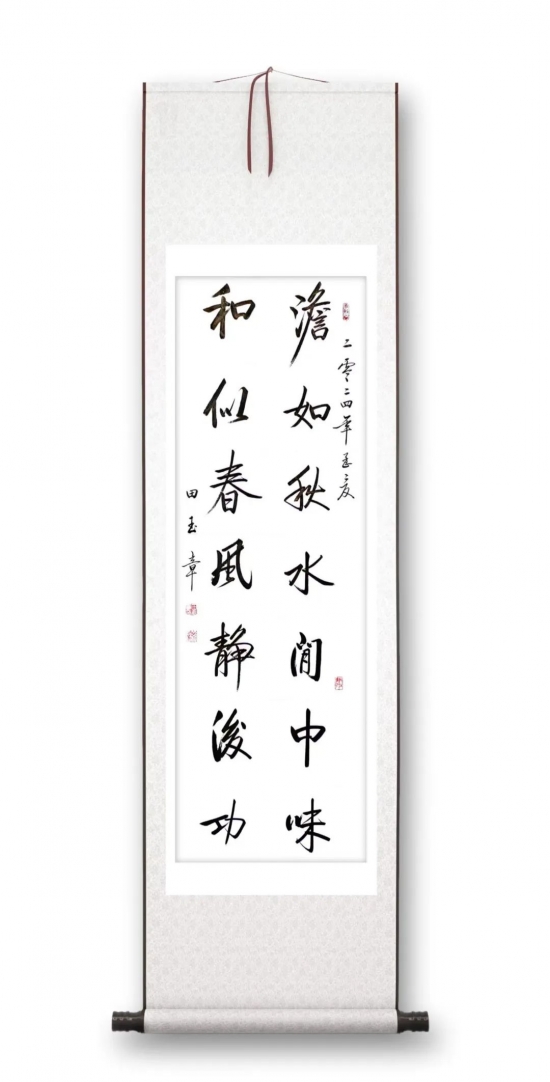 二零二四年孟夏
澹如秋水閒中味
和似春風靜後功
田玉章